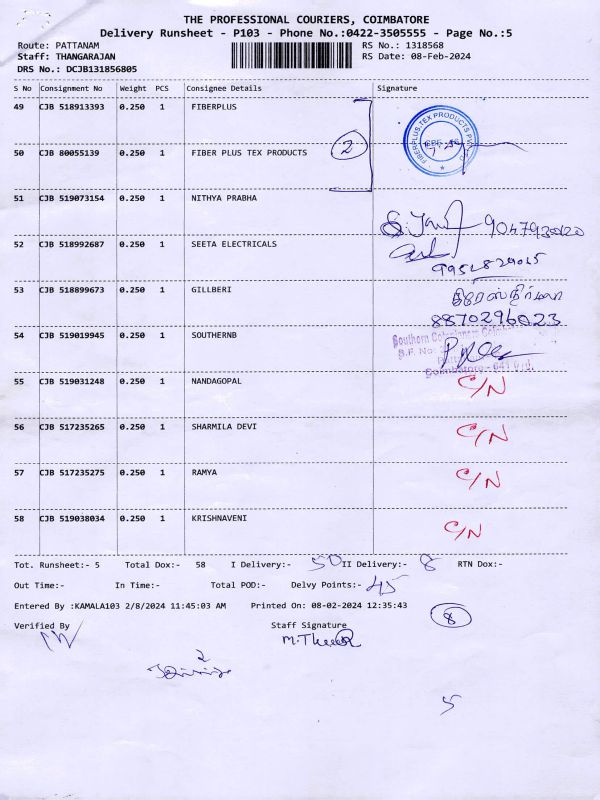 THE PROFESSIONAL COURIERS, COIMBATORE
Delivery Runsheet - P103 - Phone No.:0422-3505555 - Page No.:5
Route: PATTANAM RS No.: 1318568
Staff: THANGARAJAN RS Date: 08-Feb-2024
DRS No.: DCJB131856805
S No Consignment No Weight PCS Consignee Details Signature
49 CJB 518913393 0.250 1 FIBERPLUS
2
FIBERPLUS TEX PRODUCTS
50 CJB 80055139 0.250 1 FIBER PLUS TEX PRODUCTS
51 CJB 519073154 0.250 1 NITHYA PRABHA
52 CJB 518992687 0.250 1 SEETA ELECTRICALS
53 CJB 518899673 0.250 1 GILLBERI
8870296023
54 CJB 519019945 0.250 1 SOUTHERNB
Southern
S.F. No.
55 CJB 519031248 0.250 1 NANDAGOPAL C/N
56 CJB 517235265 0.250 1 SHARMILA DEVI C/N
57 CJB 517235275 0.250 1 RAMYA C/N
58 CJB 519038034 0.250 1 KRISHNAVENI C/N
Tot. Runsheet:- 5 Total Dox:- 58 I Delivery:- 50 II Delivery:- 8 RTN Dox:-
Out Time:- In Time:- Total POD:- Delvy Points:- 45
Entered By :KAMALA103 2/8/2024 11:45:03 AM Printed On: 08-02-2024 12:35:43
8
Verified By Staff Signature
5